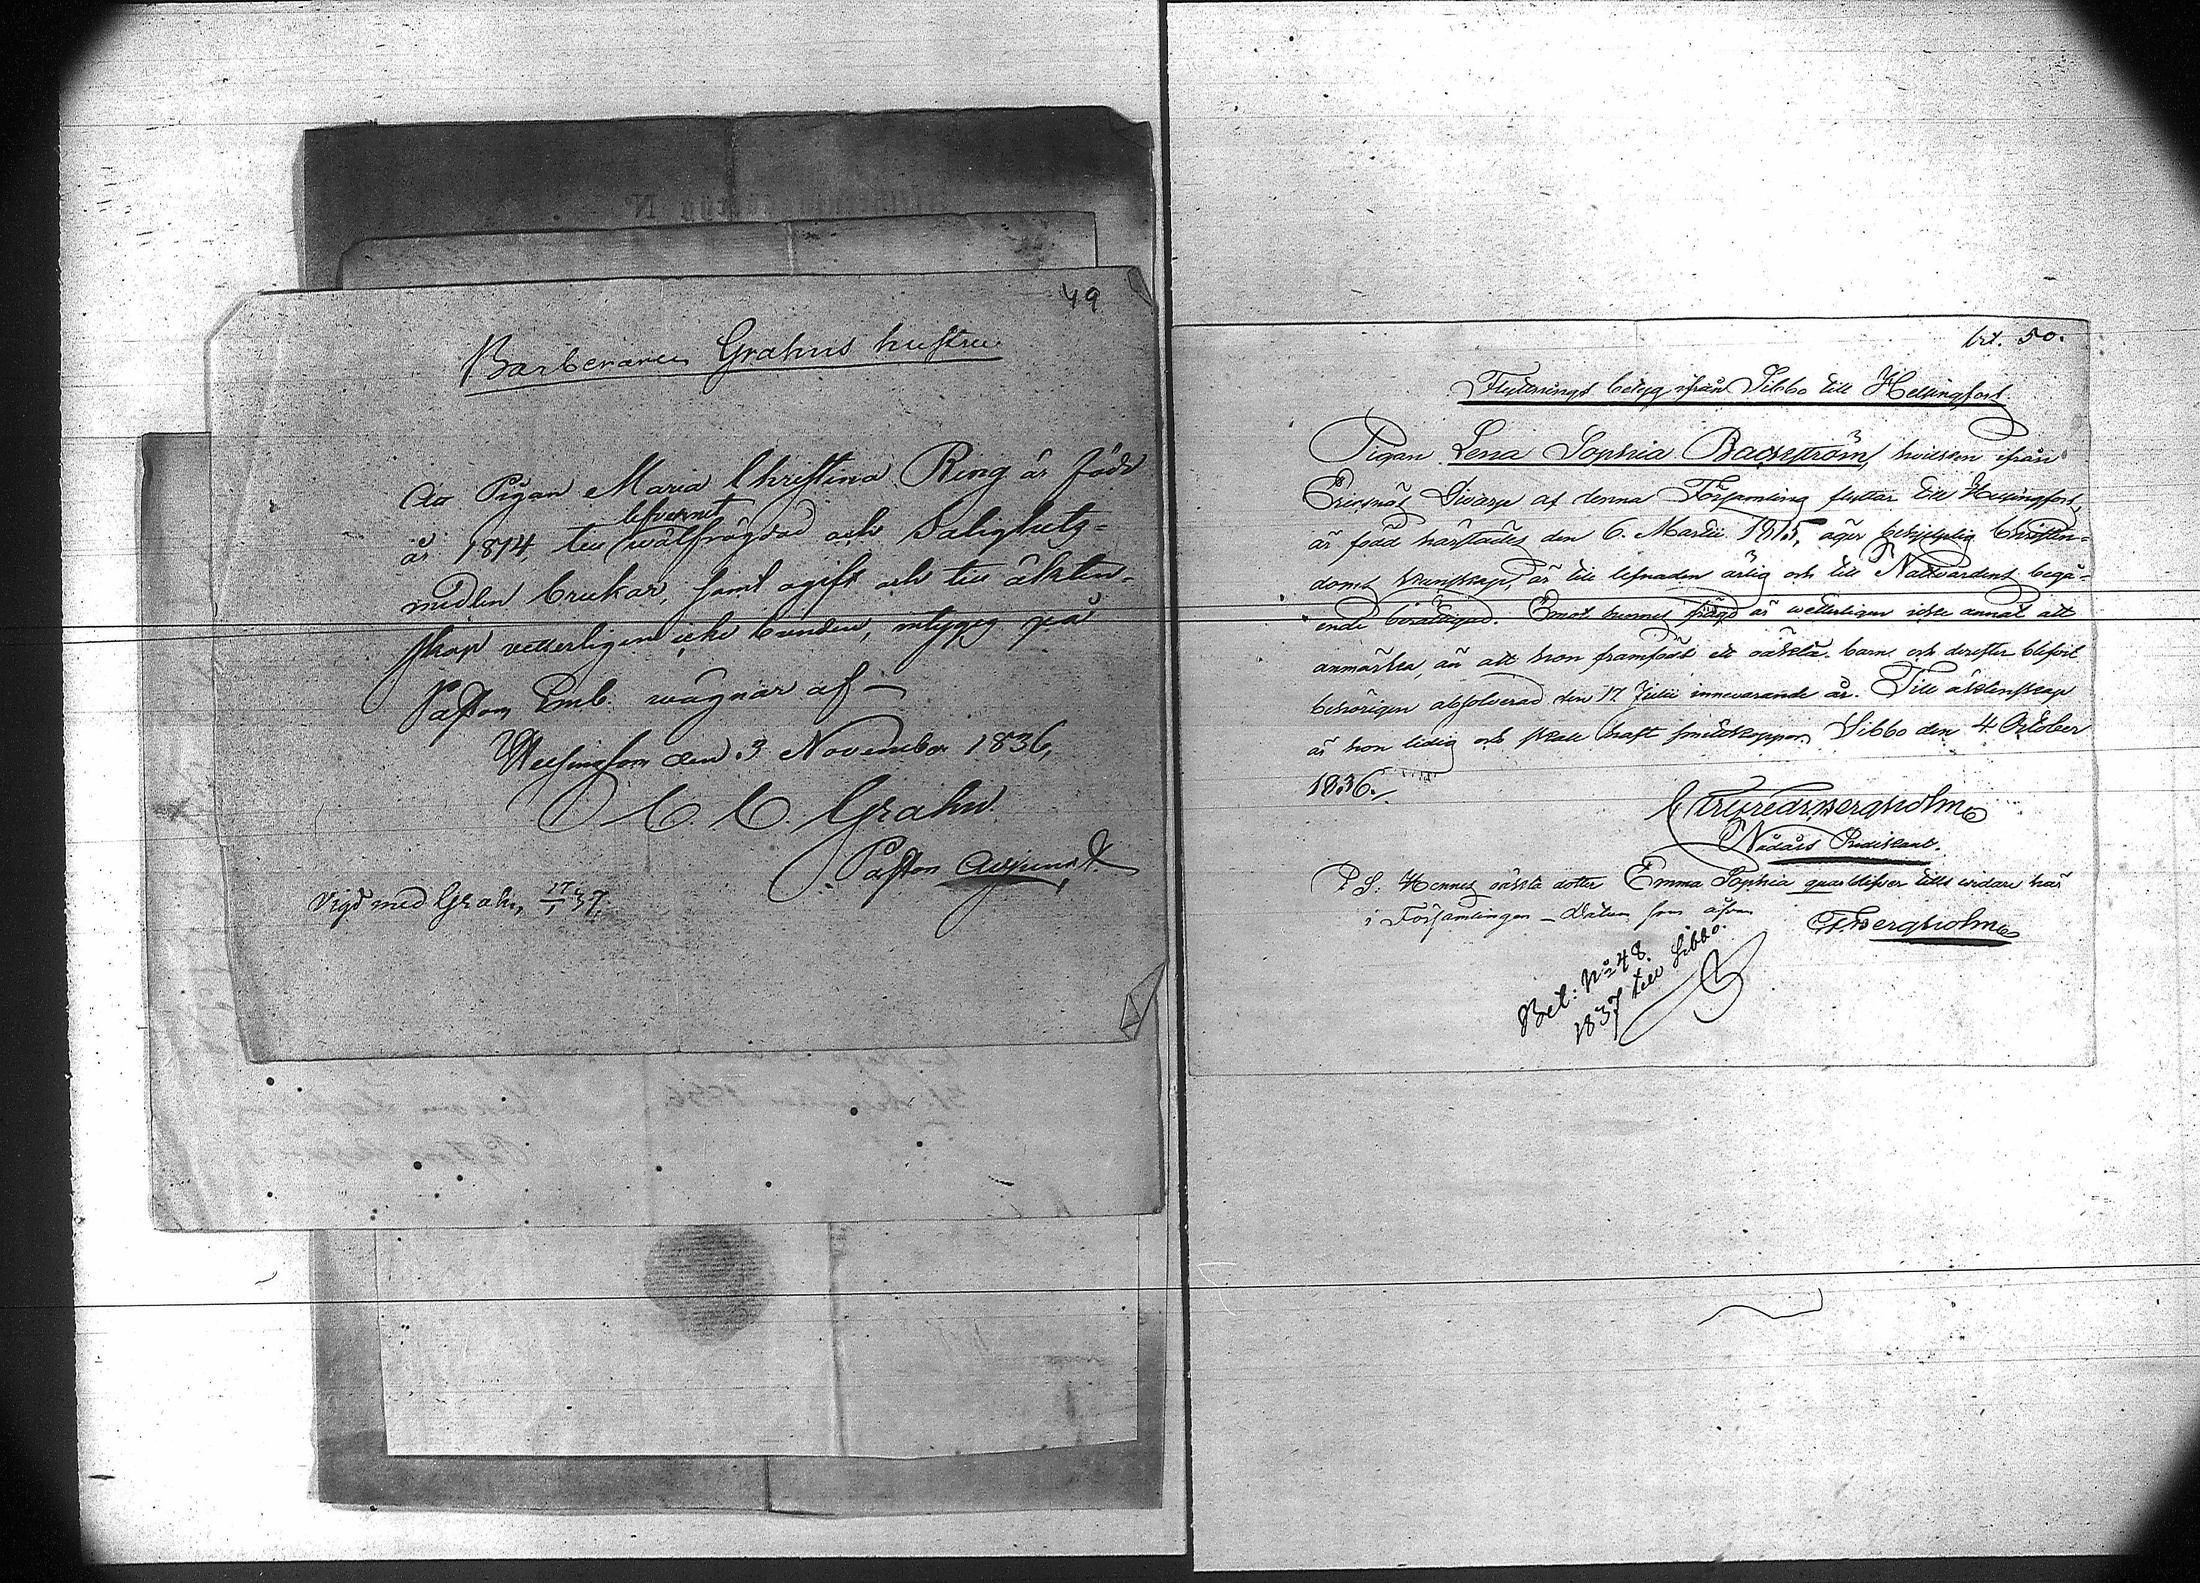 49
Barberaren Grahns hustru
Att Pigan Maria Christina Ring är född
år 1814, till lefvernet wälfrägdad och Salighets-
medlen brukar, samt ogift och till äkten-
skap vetterligen icke bunden, intygas på
Pastors Emb. wägnar af —
Helsingfors den 3 November 1836,
C. C. Grahn
Pastors Adjunct.
Vigd med Grahn, 17/1 37.
bet. 50.
Flyttnings betyg ifrån Sibbo till Helsingfors
Pigan Lena Sophia Backström, hvilken ifrån
af denna Församling flyttar till Helsingfors,
är född härstädes den 6. Martii 1815, äger behjelplig Christen-
doms kunskap, är till lefnaden ärlig och till Nattvardens begå-
ende berättigad. Emot hennes frägd är wetterligen icke annat att
anmärka, än att hon framfödt ett oäkta barn och derefter blifvit
behörigen absolverad den 17 Julii innevarande år. Till äktenskap
är hon ledig och skall haft smittkoppor. Sibbo den 4. October
1836.
Bergholm
Nådårs Predikant.
P. S. Hennes oäkta dotter Emma Sophia quarblifver tills vidare här
i Församlingen — Datum som ofvan
Bergholm
Bet: No 48.
1837 till Sibbo.